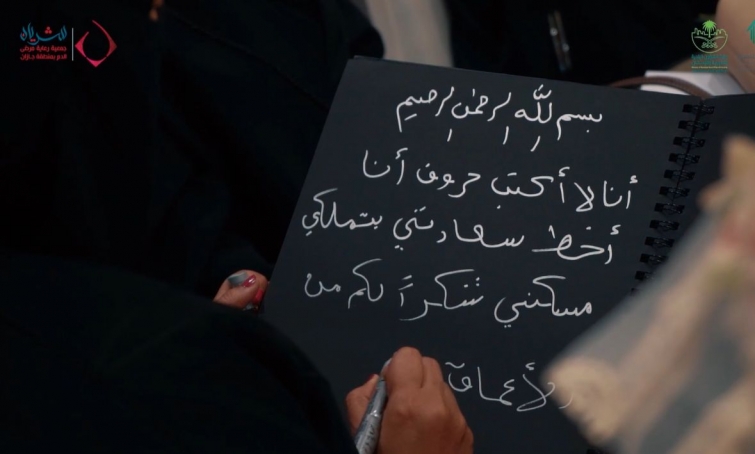 الشريان
جمعية رعاية مرضى
الدم بمنطقة جازان
بسم الله الرحمن الرحيم
أنا لا أكتب حروف أنا
أخط سعادتني بتملكي
مسكني شكراً لكم من
الأعماق